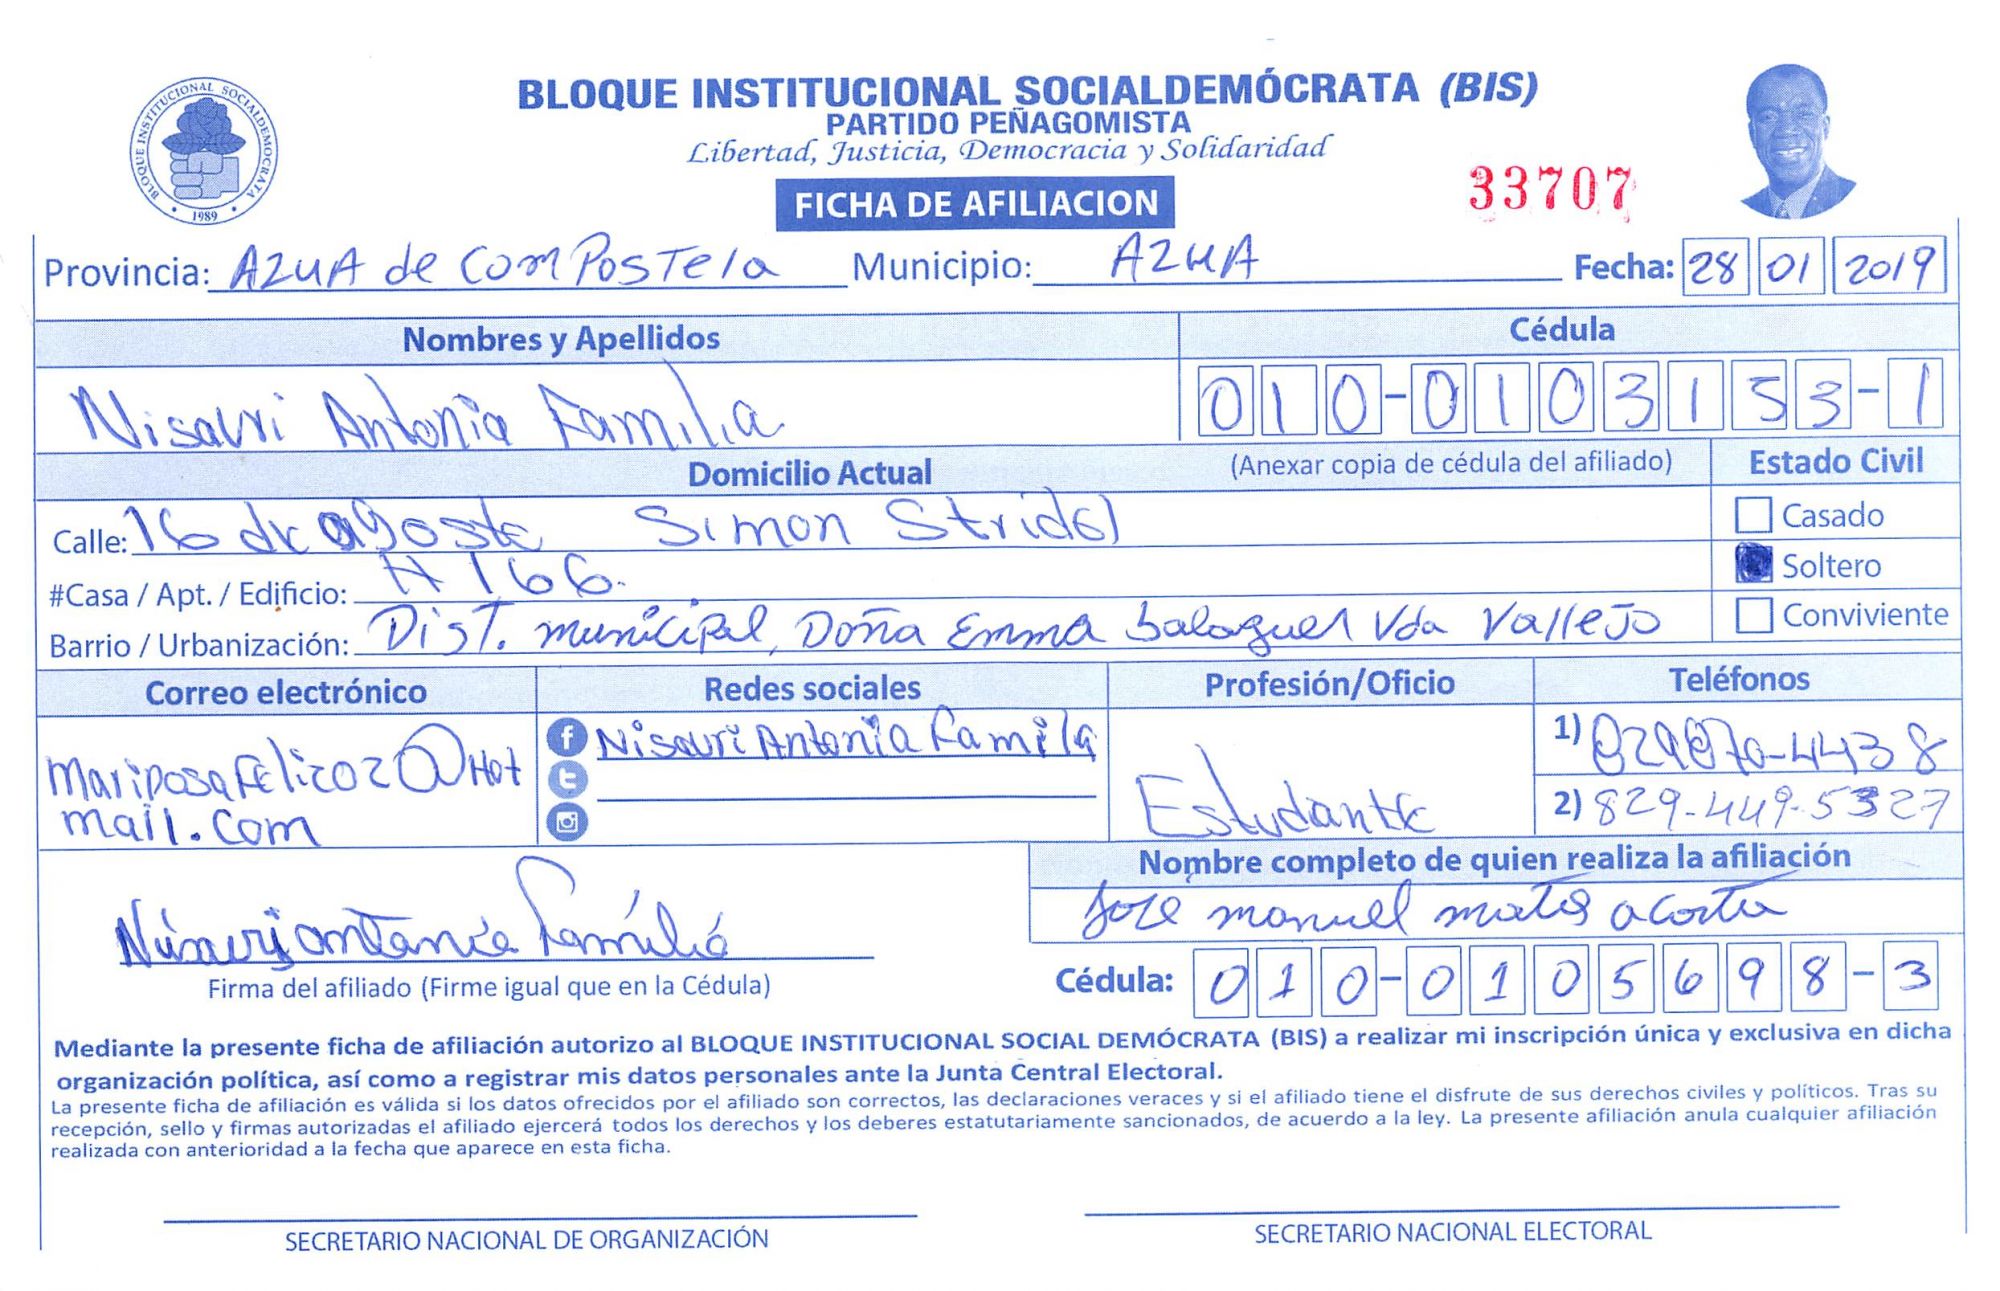 BLOQUE INSTITUCIONAL SOCIALDEMÓCRATA (BIS)
PARTIDO PEÑAGOMISTA
Libertad, Justicia, Democracia y Solidaridad
BLOQUE INSTITUCIONAL SOCIALDEMOCRATA
1989
33707
FICHA DE AFILIACION
Provincia: AZUA de ComPosTela Municipio: AZUA Fecha: 28 01 2019
Nombres y Apellidos Cédula
Nisauri Antonia Familia 010-0103153-1
Domicilio Actual (Anexar copia de cédula del afiliado) Estado Civil
Calle: 16 de agosto Simon Stridol Casado
#Casa / Apt. / Edificio: # 166. Soltero
Barrio / Urbanización: Dist. municipal, Doña Emma balaguer Vda Vallejo Conviviente
Correo electrónico Redes sociales Profesión/Oficio Teléfonos
mariposaFelicoz@Hot Nisauri Antonia Famila Estudante 1) 829870-4438
mail.com 2) 829-449-5327
Nombre completo de quien realiza la afiliación
Jose manuel matos acosta
Nisauri antonia Familia
Firma del afiliado (Firme igual que en la Cédula) Cédula: 010-0105698-3
Mediante la presente ficha de afiliación autorizo al BLOQUE INSTITUCIONAL SOCIAL DEMÓCRATA (BIS) a realizar mi inscripción única y exclusiva en dicha
organización política, así como a registrar mis datos personales ante la Junta Central Electoral.
La presente ficha de afiliación es válida si los datos ofrecidos por el afiliado son correctos, las declaraciones veraces y si el afiliado tiene el disfrute de sus derechos civiles y políticos. Tras su
recepción, sello y firmas autorizadas el afiliado ejercerá todos los derechos y los deberes estatutariamente sancionados, de acuerdo a la ley. La presente afiliación anula cualquier afiliación
realizada con anterioridad a la fecha que aparece en esta ficha.
SECRETARIO NACIONAL DE ORGANIZACIÓN SECRETARIO NACIONAL ELECTORAL